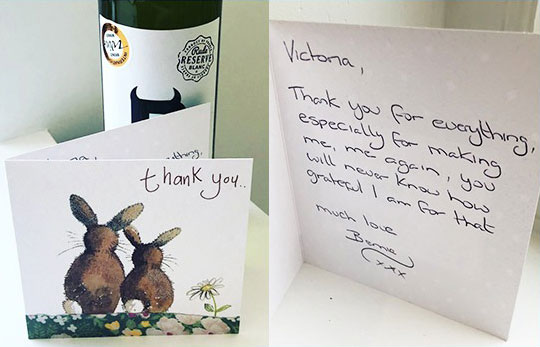 Rude
RESERVE
BLANC
thank you..
Victoria,
Thank you for everything,
especially for making
me, me again, you
will never know how
grateful I am for that
much love
Bernie
xxx